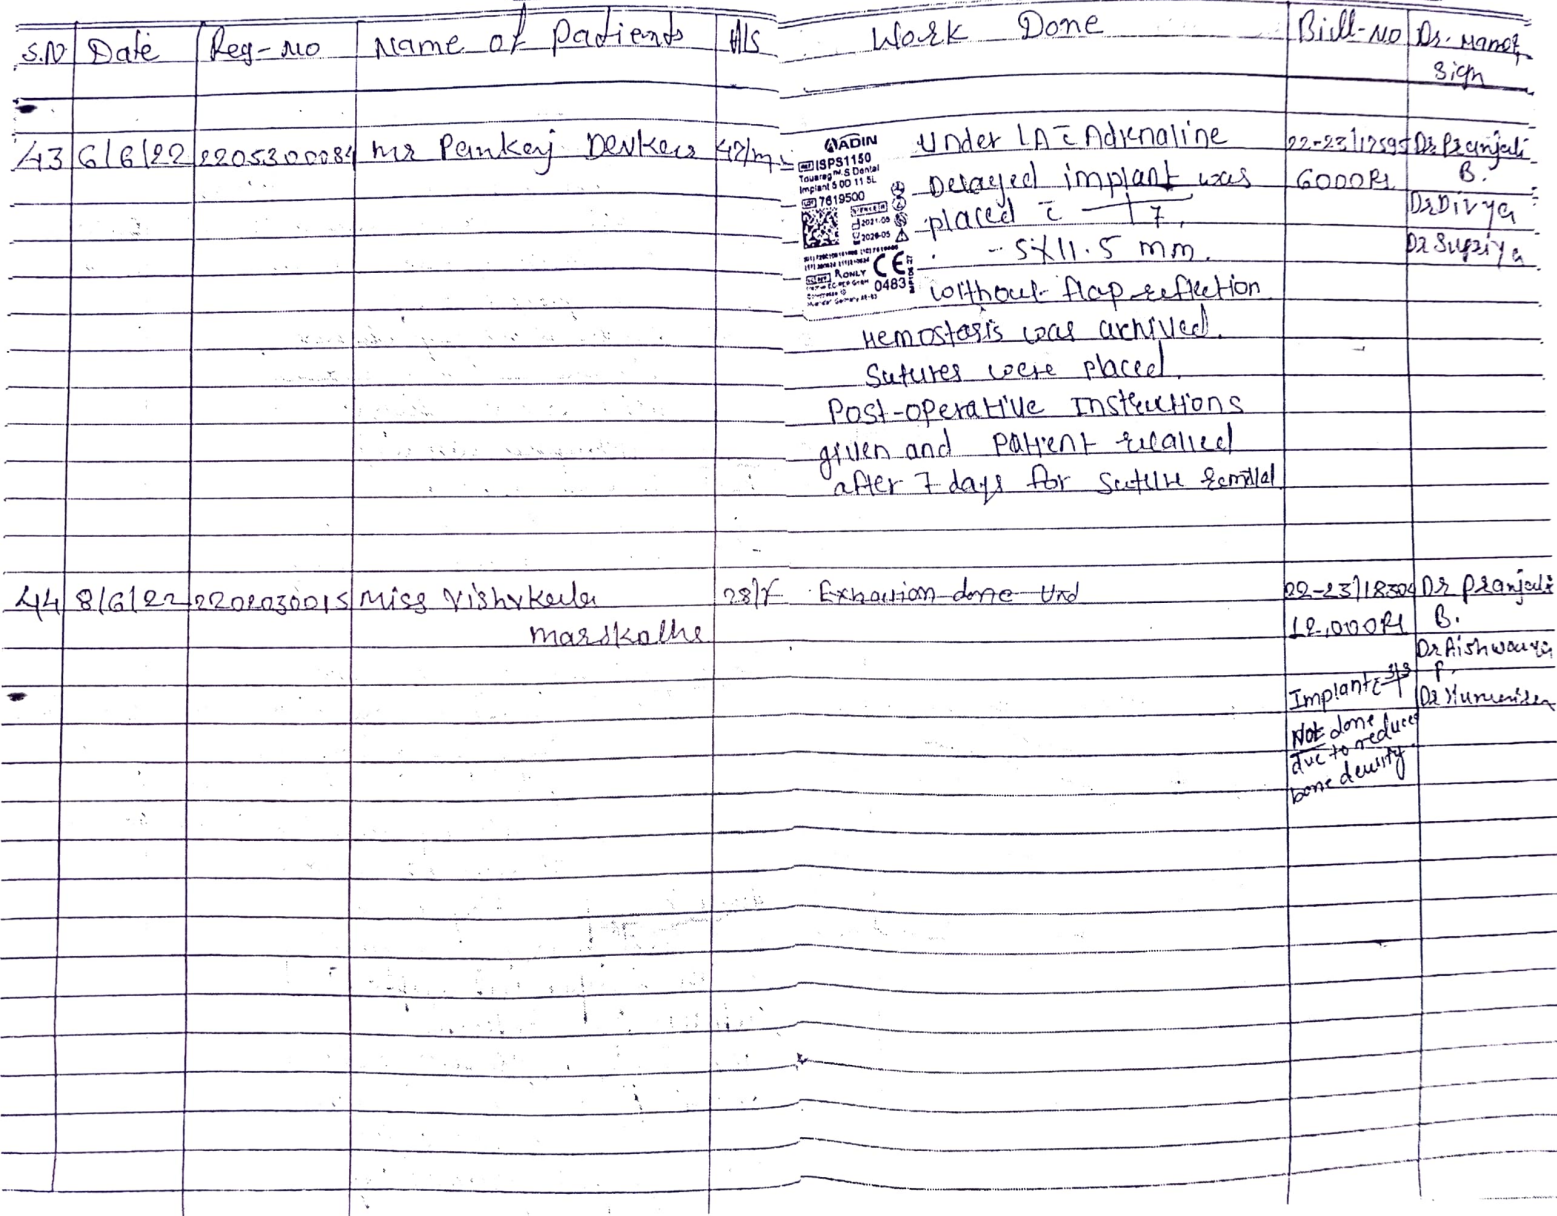 S.N Date Reg-no Name of Patients A/S Work Done Bill-no Dr. Manoj
Sign
43 6/6/22 2205300084 Mr Pankaj Devkar 42/m
ADIN
REF ISPS1150
Touareg™ S Dental
Implant 5 OD 11.5L
LOT 7619500
2021-05
2026-05
RONLY
CE
0483
Under LA c̄ Adrenaline
Delayed implant was
placed c̄ 7
- 5X11.5 mm.
without flap reflection
Hemostasis was achived.
Sutures were placed.
Post-operative Instructions
given and patient recalled
after 7 days for suture
22-23/12595
6000Rs
Dr Pranjali
B.
Dr Divya
Dr Supriya
44 8/6/22 2202030015 Miss
Marskolhe
28/F
Extraction done
22-23/18304
12,000Rs
Implant c̄
Not done
due to reduced
bone density
Dr Pranjali
B.
Dr Aishwarya
P.
Dr